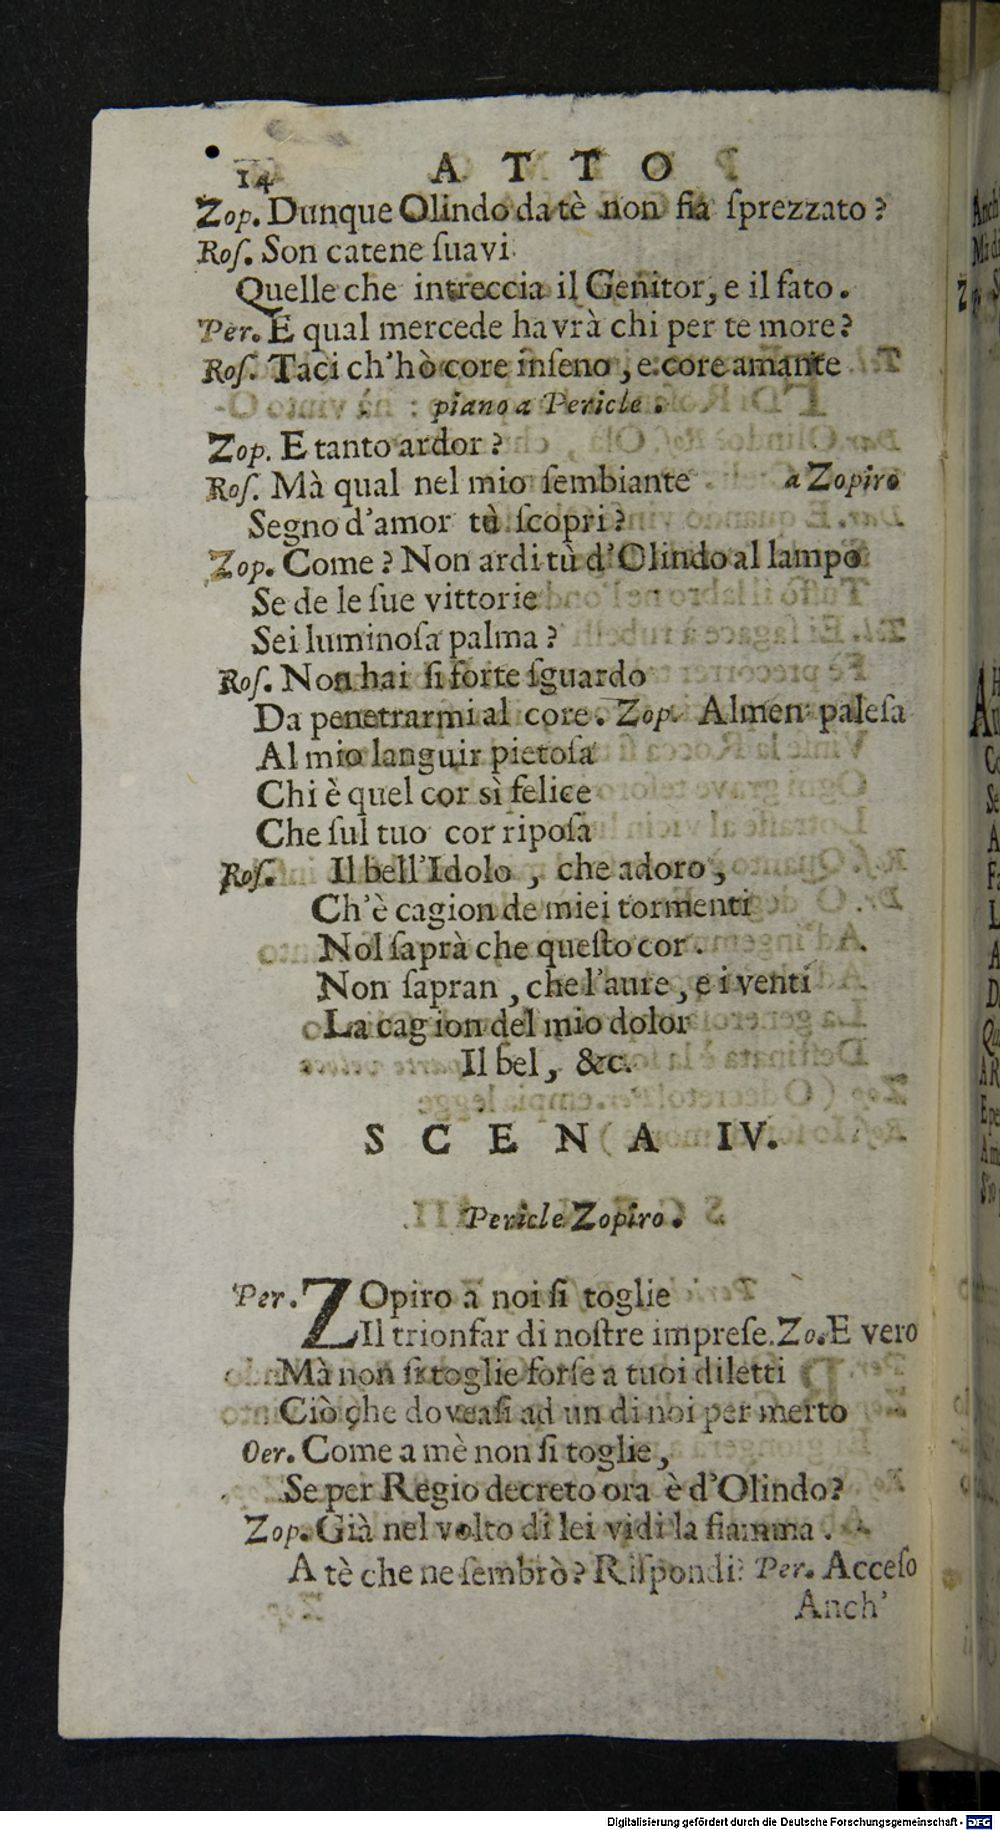 14 ATTO
Zop. Dunque Olindo da tè non fia ſprezzato?
Roſ. Son catene ſuavi
Quelle che intreccia il Genitor, e il fato.
Per. E qual mercede havrà chi per te more?
Roſ. Taci ch'hò core inſeno, e core amante
piano a Pericle.
Zop. E tanto ardor?
Roſ. Mà qual nel mio ſembiante a Zopiro
Segno d'amor tù ſcopri?
Zop. Come? Non ardi tù d'Olindo al lampo
Se de le ſue vittorie
Sei luminoſa palma?
Roſ. Non hai ſi forte ſguardo
Da penetrarmi al core. Zop. Almen paleſa
Al mio languir pietoſa
Chi è quel cor sì felice
Che ſul tuo cor ripoſa
Roſ. Il bell'Idolo, che adoro,
Ch'è cagion de miei tormenti
Nol ſaprà che queſto cor.
Non ſapran, che l'aure, e i venti
La cagion del mio dolor
Il bel, &c.
SCENA IV.
Pericle Zopiro.
Per. ZOpiro a noi ſi toglie
Il trionfar di noſtre impreſe. Zo. E vero
Mà non ſi toglie forſe a tuoi diletti
Ciò che doveaſi ad un di noi per merto
Oer. Come a mè non ſi toglie,
Se per Regio decreto ora è d'Olindo?
Zop. Già nel volto di lei vidi la fiamma.
A tè che ne ſembrò? Riſpondi: Per. Acceſo
Anch'
Digitalisierung gefördert durch die Deutsche Forschungsgemeinschaft - DFG